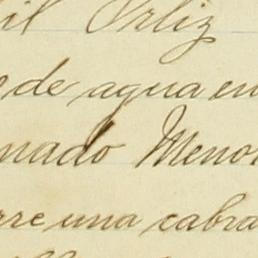 il Ortiz
de agua en
nado Menor
rre una cabra